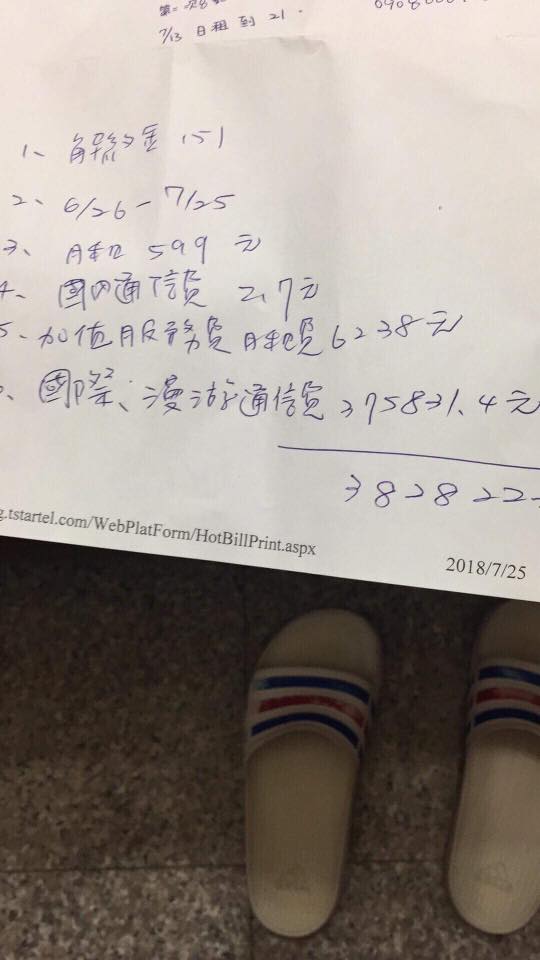 7/13 日租到 21.
1、解約金 151
2、6/26-7/25
3、月租 599 元
4、國內通信費 2.7元
5、加值服務費月租費 6238元
、國際、漫游通信費 375831.4元
382822
g.tstartel.com/WebPlatForm/HotBillPrint.aspx
2018/7/25